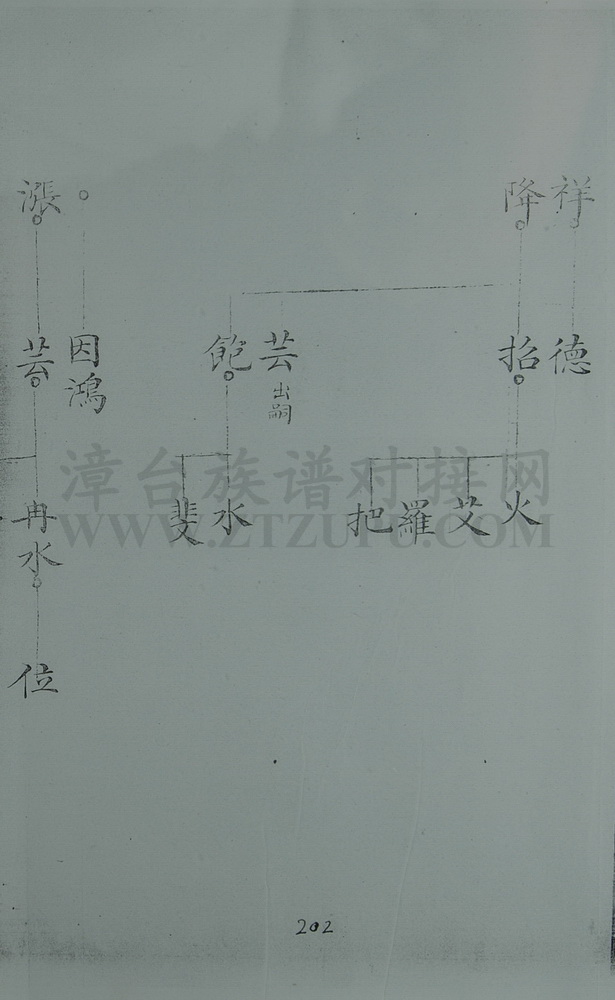 祥
降
○
漲
德
招
芸 出嗣
飽
因鴻
芸
火
艾
羅
把
水
斐
冉水
位
漳台族谱对接网
WWW.ZTZUPU.COM
202